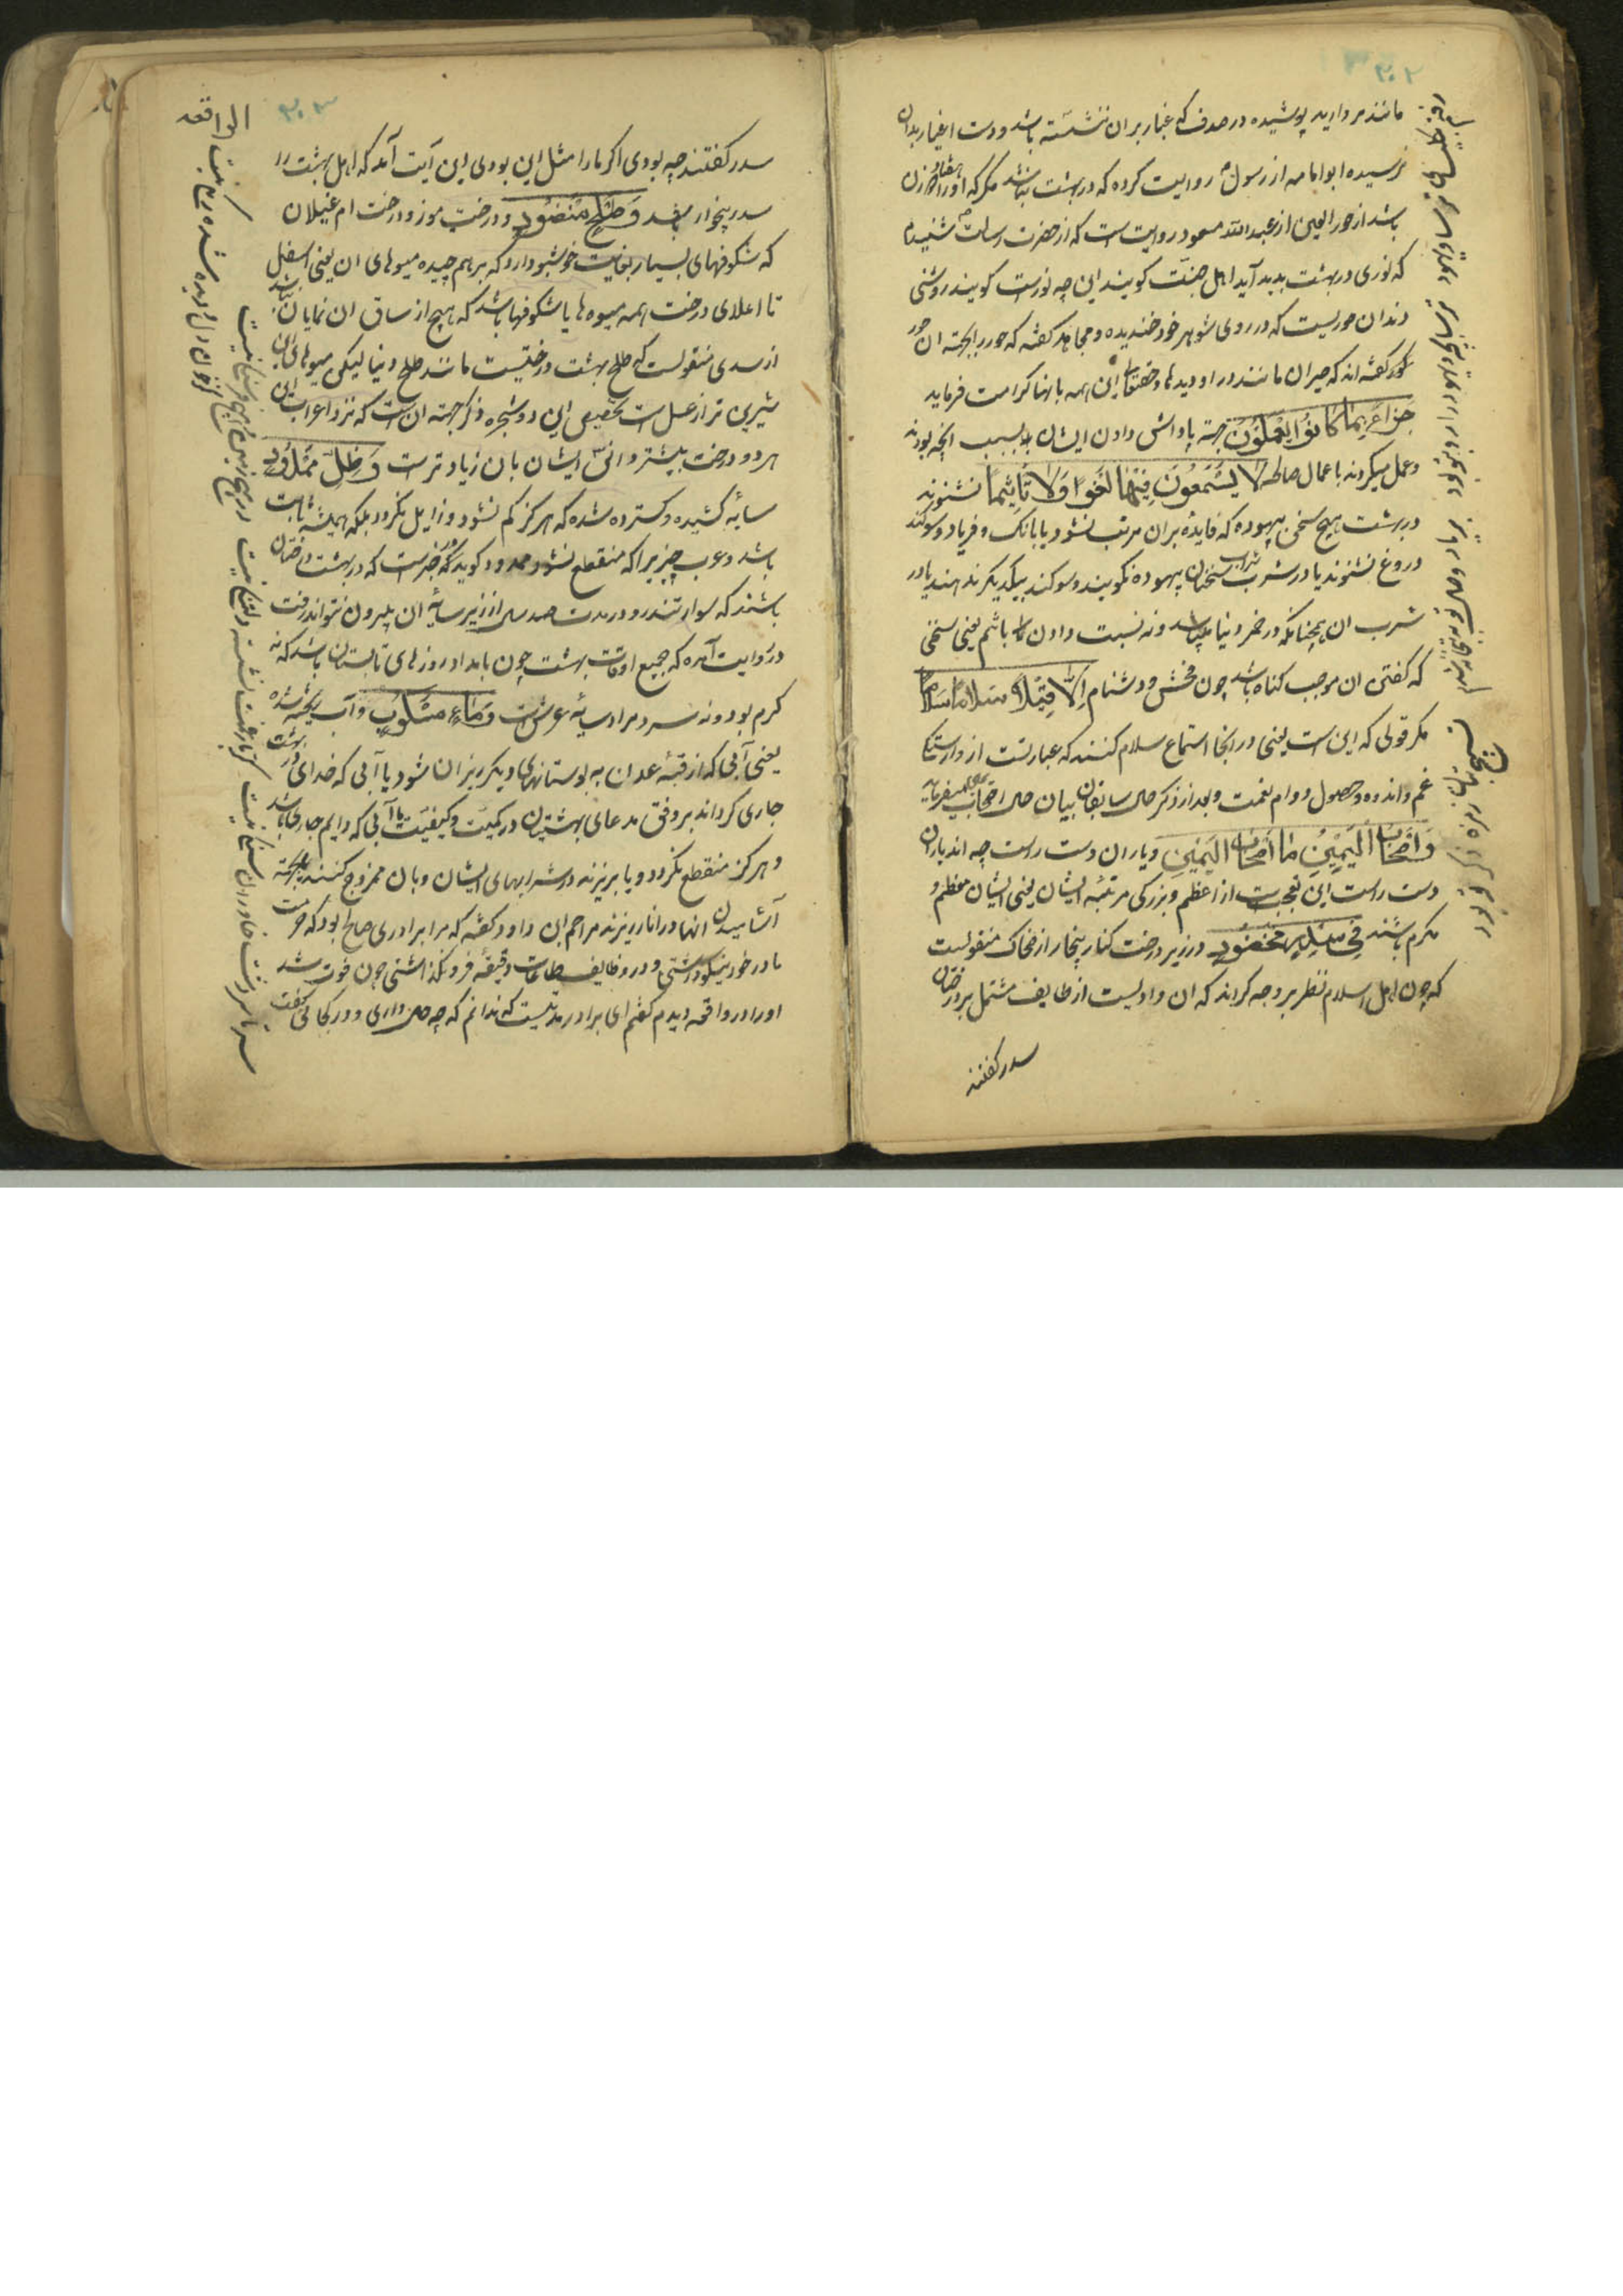 ۳۰۲
مانند مروارید پوشیده در صدف که غبار بران ننشسته باشد و دست اغیار بدان
نرسیده ابو امامه از رسول روایت کرده که در بهشت نباشد مگر که او را هفتاد زن
باشد از حور العین از عبد الله مسعود روایت است که از حضرت رسالت شنیدم
که نوری در بهشت بدید آید اهل جنت گویند این چه نورست گویند روشنی
دندان حوریست که در روی شوهر خود خندیده و مجاهد گفته که حور را بجهة ان حور
گفته اند که حیران مانند در او دیدها و حقتعالی این همه بانها کرامت فرماید
جَزَاءً بِمَا كَانُوا يَعْمَلُونَ جهة پاداش دادن ایشان بسبب انچه بودند
و عمل میکردند باعمال صالحه لَا يَسْمَعُونَ فِيهَا لَغْوًا وَلَا تَأْثِيمًا نشنوند
در بهشت هیچ سخن بیهوده که فایده بران مرتب نشود یا بانک و فریاد و سوکند
دروغ نشنوند یا در شرب شراب سخنان بیهوده نکویند و سوکند بیکدیکر ندهند یا در
شرب ان همچنانکه در خمر دنیا میباشد و نه نسبت دادن باثم یعنی سخنی
که گفتن ان موجب کناه باشد چون فحش و دشنام إِلَّا قِيلًا سَلَامًا سَلَامًا
مکر قولی که این است یعنی در انجا استماع سلام کنند که عبارتست از وارستکی
غم و اندوه و حصول دوام نعمت و بعد از ذکر حال سابقان بیان حال اصحاب یمین میفرماید
وَأَصْحَابُ الْيَمِينِ مَا أَصْحَابُ الْيَمِينِ و یاران دست راست چه اند یاران
دست راست این تعجب است از اعظم و بزرکی مرتبه ایشان یعنی ایشان معظم و
مکرم باشند فِي سِدْرٍ مَخْضُودٍ در زیر درخت کنار بیخار از ضحاک منقولست
که چون اهل اسلام نظر بر وجه کردند که ان وادیست از طایف مشتمل بر درختان
سدر گفتند
۳۰۳
الواقعه
سدر گفتند چه بودی اکر ما را مثل این بودی این آیت آمد که اهل بهشت را
سدر بیخار باشد وَطَلْحٍ مَنْضُودٍ و درخت موز و درخت ام غیلان
که شکوفهای بسیار بغایت خوشبو دارد که بر هم چیده میوهای ان یعنی اسفل
تا اعلای درخت همه میوه ها یا شکوفها باشد که هیچ از ساق ان نمایان نباشد
از سدی منقولست که طلح بهشت درختیست مانند طلح دنیا لیکن میوهای ان
شیرین تر از عسل است تخصیص این دو شجره ذکر جهة ان است که نزد اعراب این
هر دو درخت بیشتر و انس ایشان بان زیادترست وَظِلٍّ مَمْدُودٍ
سایه کشیده و کسترده شده که هرکز کم نشود و زایل نکردد بلکه همیشه ثابت
باشد و عرب چیزیرا که منقطع نشود ممدود کوید در خبرست که در بهشت درختان
باشند که سوار تندرو در مدت صد سال از زیر سایه ان بیرون نتواند رفت
در روایت آمده که جمیع اوقات بهشت چون بامداد روزهای تابستان باشد که نه
کرم بود و نه سرد مراد سایه عرش است وَمَاءٍ مَسْكُوبٍ و آب ریخته شده
یعنی آبی که از قبه عدن به بوستانهای دیکر ریزان شود یا آبی که خدای در بهشت
جاری کرداند بر وفق مدعای بهشتیان در کمیت و کیفیت یا آبی که دایم جاری باشد
و هرکز منقطع نکردد و یا بریزند در شرابهای ایشان و بان ممزوج کنند یا بجهة
آشامیدن انها در انا ریزند مزاحم ابن داود گفته که مرا برادری صالح بود که حرمت
مادر خود نیکو داشتی و در وظایف طاعات دقیقه فرو نکذاشتی چون فوت شد
او را در واقعه دیدم کفتم ای برادر مدتیست که ندانم که چه حال داری و در کجایی گفت